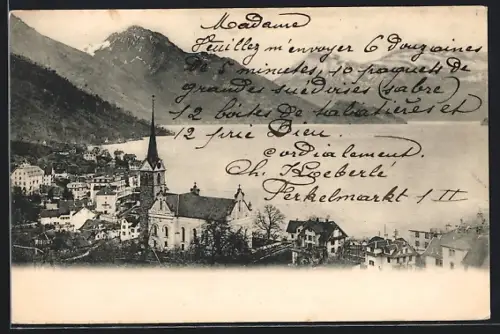 Madame
Veuillez m'envoyer 6 douzaines
de 5 minutes, 10 paquets de
grandes suédoises (sabre)
12 boîtes de sabatières et
12 prie Dieu.
cordialement.
Ch. Haeberle
Ferkelmarkt 1 II